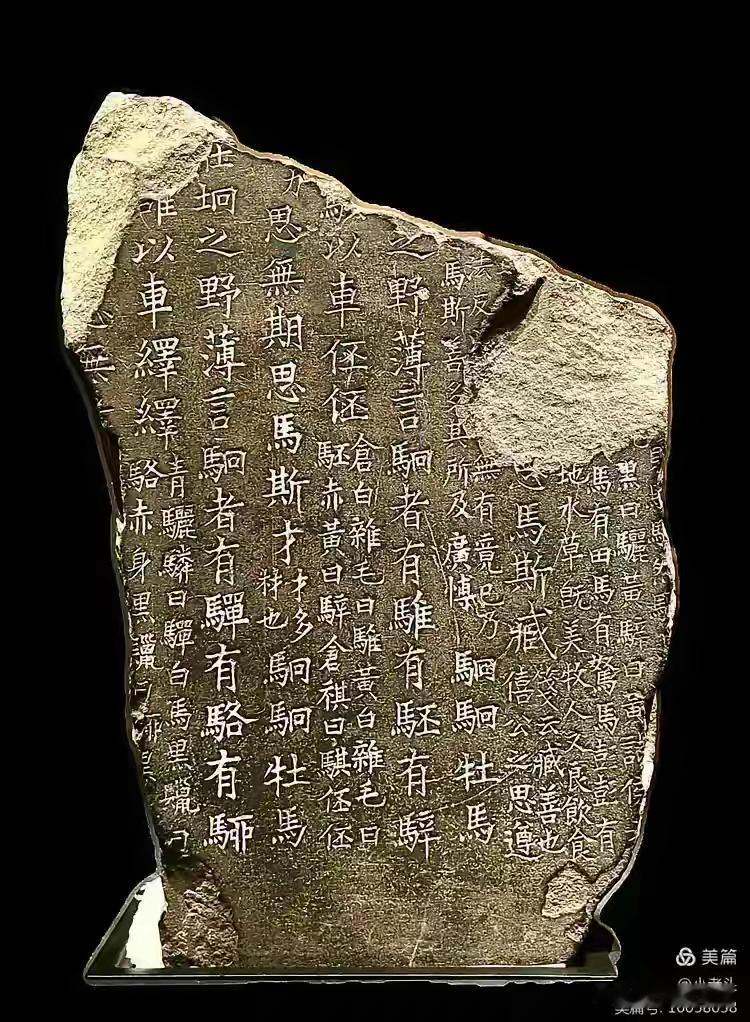 黑曰驪黃騂曰黃諸侯
馬有田馬有駑馬彭彭有
地水草既美牧人又良飲食
馬斯臧
箋云臧善也
僖公之思遵
法反
無有竟已乃
馬斯善多其所及廣博
駉駉牡馬
之野薄言駉者有騅有駓有騂
以車伾伾
倉白雜毛曰騅黃白雜毛曰
駓赤黃曰騂倉祺曰騏伾伾
力思無期思馬斯才
才多
材也
駉駉牡馬
在坰之野薄言駉者有驒有駱有駵
雒以車繹繹
青驪驎曰驒白馬黑鬣曰
駱赤身黑鬣曰駵黑
思無
美篇
@小老头
美篇号: 10058058